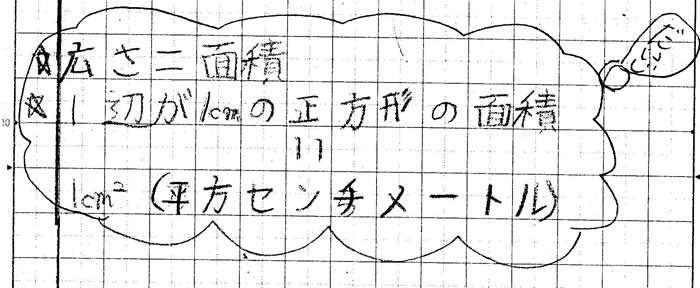 ☆広さ＝面積
☆1辺が1cmの正方形の面積
=
1cm² (平方センチメートル)
10